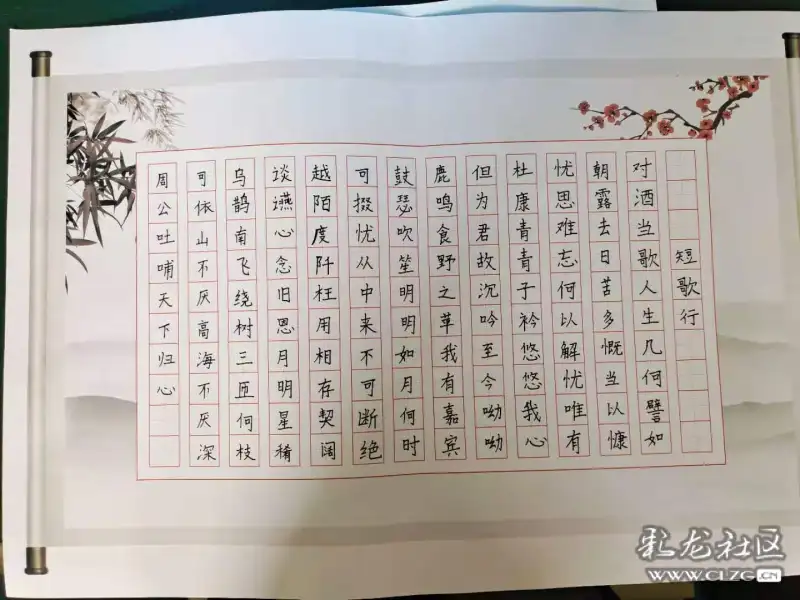 短歌行
对酒当歌人生几何譬如
朝露去日苦多慨当以慷
忧思难忘何以解忧唯有
杜康青青子衿悠悠我心
但为君故沉吟至今呦呦
鹿鸣食野之苹我有嘉宾
鼓瑟吹笙明明如月何时
可掇忧从中来不可断绝
越陌度阡枉用相存契阔
谈讌心念旧恩月明星稀
乌鹊南飞绕树三匝何枝
可依山不厌高海不厌深
周公吐哺天下归心
彩龙社区
WWW.CLZG.CN